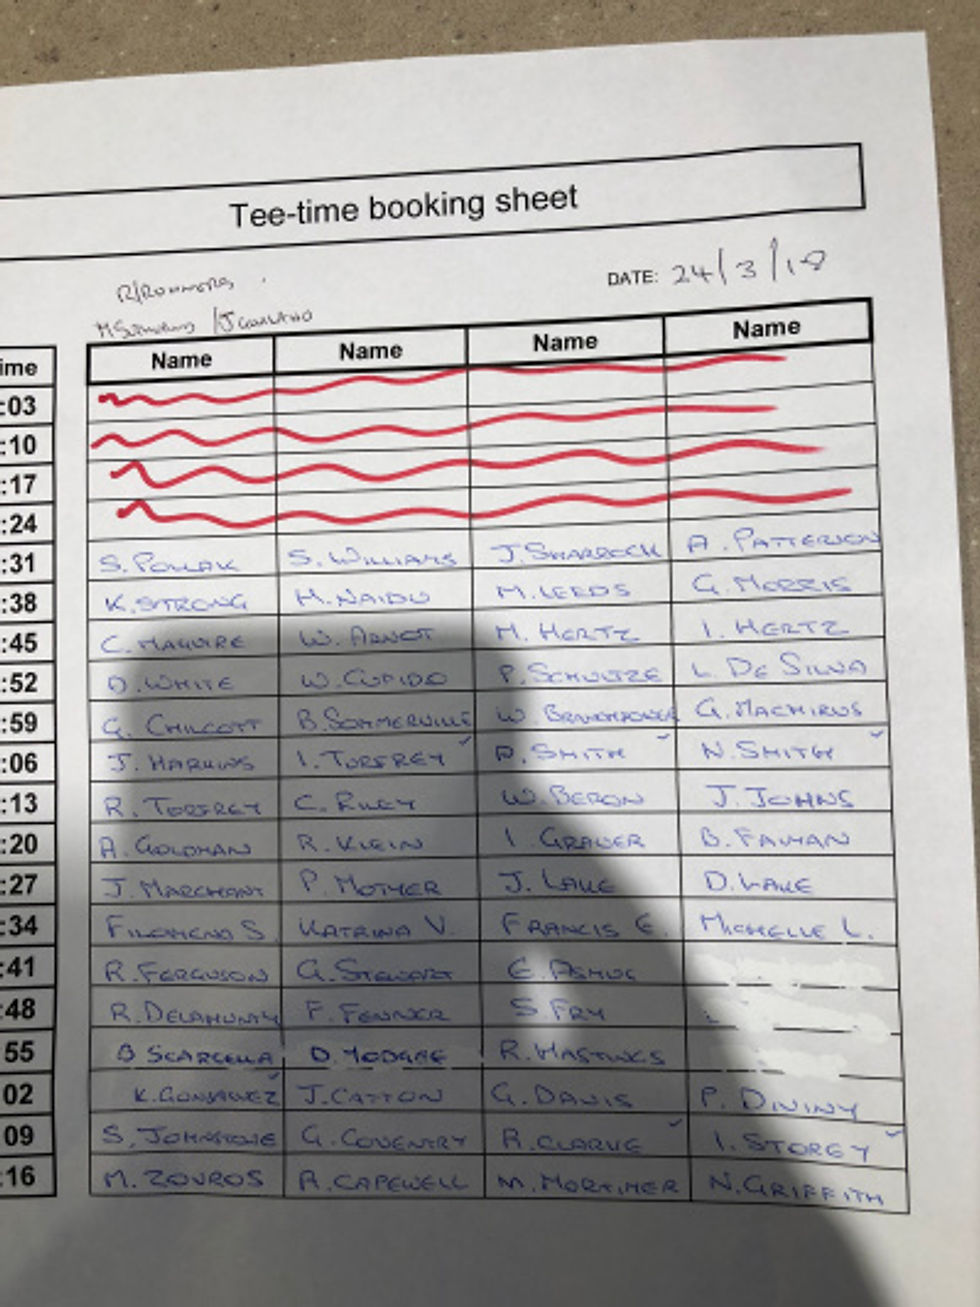 Tee-time booking sheet
DATE: 24/3/18
ime Name Name Name Name
:03
:10
:17
:24
:31 S. POLLAK S. WILLIAMS J. SHARROCK A. PATTERSON
:38 K. STRONG H. NAIDU M. LEEDS G. MORRIS
:45 C. MAGUIRE W. ARNOT M. HERTZ I. HERTZ
:52 D. WHITE W. CUPIDO P. SCHULTZE L. DE SILVA
:59 G. CHILCOTT B. SOMMERVILLE W. G. MACHIRUS
:06 J. HARKINS I. TORFREY D. SMITH N. SMITH
:13 R. TORFREY C. RILEY W. BERON J. JOHNS
:20 A. GOLDMAN R. KLEIN I. GRAUER B. FAIMAN
:27 J. MARCHANT P. MOTHER J. LAKE D. LAKE
:34 FILOMENO S. KATRINA V. FRANCIS E. MICHELLE L.
:41 R. FERGUSON G. STEWART E.
:48 R. DELAHUNTY F. FENNER S. FRY
55 B SCARCELLA D. R. HASTINGS
02 K. GONSALVEZ J. CATTON G. DAVIS P. DIVINY
09 S. JOHNSTONE G. COVENTRY R. CLARKE I. STOREY
:16 M. ZOUROS A. CAPEWELL M. MORTIMER N. GRIFFITH